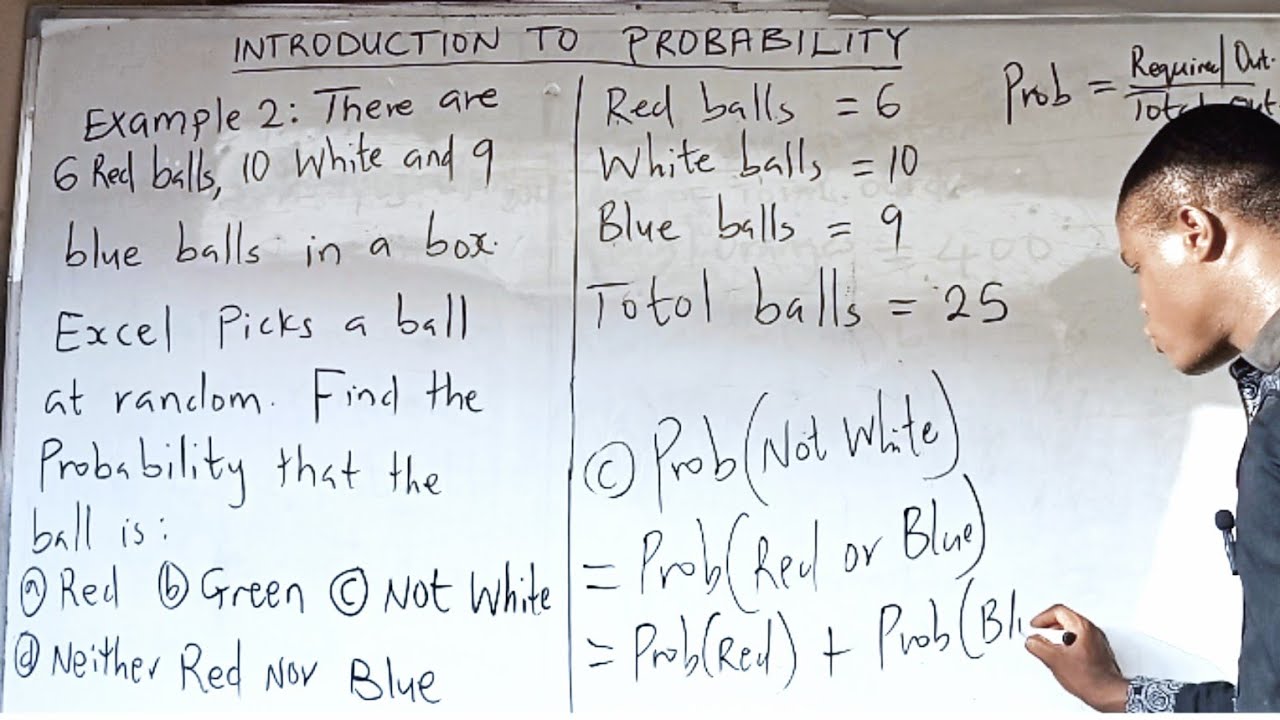 INTRODUCTION TO PROBABILITY
Example 2: There are
6 Red balls, 10 White and 9
blue balls in a box.
Excel Picks a ball
at random. Find the
Probability that the
ball is:
ⓐ Red ⓑ Green ⓒ Not White
ⓓ Neither Red Nor Blue
Red balls = 6
White balls = 10
Blue balls = 9
Total balls = 25
ⓒ Prob(Not White)
= Prob(Red or Blue)
= Prob(Red) + Prob(Bl
Prob = Required Out.
Total Out